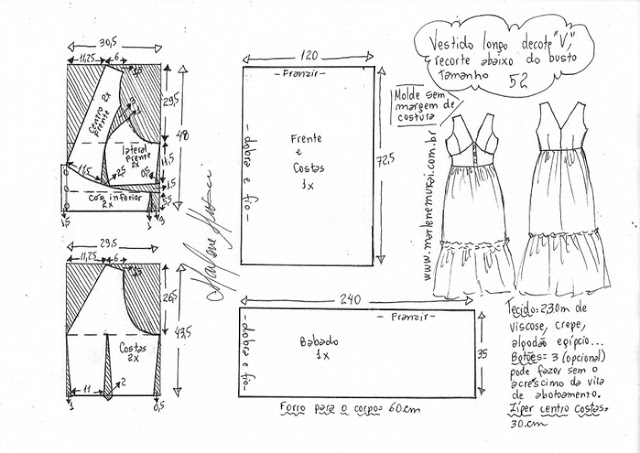 Vestido longo decote "V",
recorte abaixo do busto
Tamanho 52
Molde sem
margem de
costura
www.marlenemukai.com.br
30,5
11,25
6
1,5
29,5
48
11,5
1,5
5,5
Centro
Frente
2x
lateral
frente
2x
11,5
2,5
0,5
Cós inferior
2x
1,5
3
29,5
11,25
6
1,5
26,5
43,5
Costas
2x
11
2
1
0,5
Marlene Mukai
120
- Franzir -
- dobra e fio -
Frente
e
Costas
1x
72,5
240
- Franzir -
- dobra e fio -
Babado
1x
35
Forro para o corpo= 60cm
Tecido= 2,30m de
viscose, crepe,
algodão egípcio...
Botões= 3 (opcional)
pode fazer sem o
acréscimo da vita
de abotoamento.
Zíper centro costas=
30cm